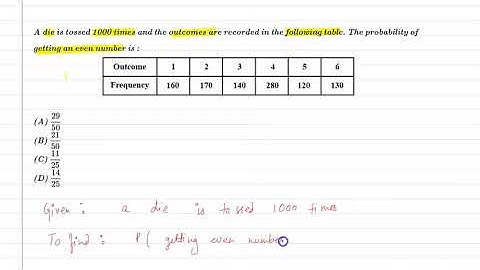 A die is tossed 1000 times and the outcomes are recorded in the following table. The probability of
getting an even number is :
Outcome 1 2 3 4 5 6
Frequency 160 170 140 280 120 130
(A) 29/50
(B) 21/50
(C) 11/25
(D) 14/25
Given : a die is tossed 1000 times
To find : P ( getting even number